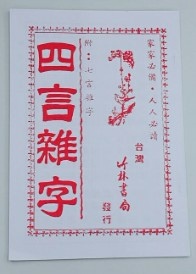 家家必備・人人必讀
台灣
竹林書局
發行
附：七言雜字
四言雜字